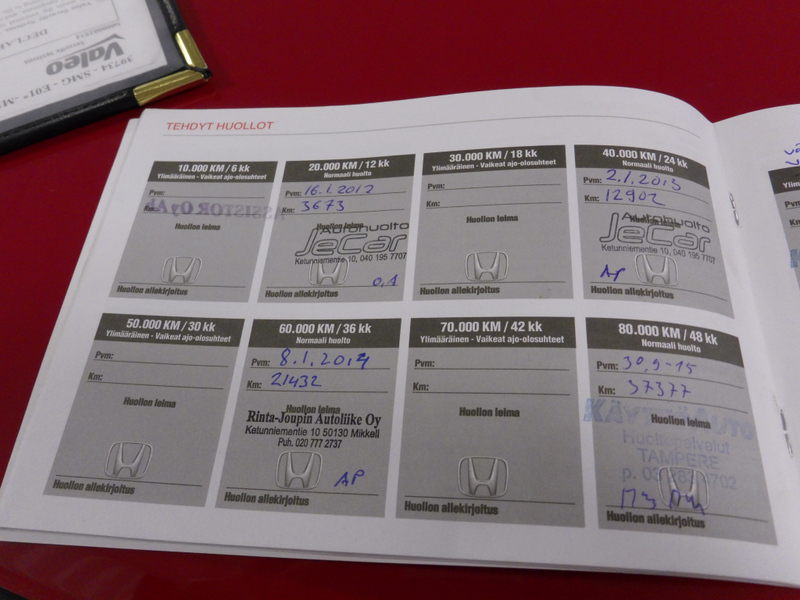 Valeo
Security systems
39734 - SMG - E01*
TEHDYT HUOLLOT
10.000 KM / 6 kk
Ylimääräinen - Vaikeat ajo-olosuhteet
Pvm:
Km:
ASSISTOR Oy Ab
Huollon leima
Huollon allekirjoitus
20.000 KM / 12 kk
Normaali huolto
Pvm: 16.1.2012
Km: 3673
Huollon leima
Autohuolto
JeCar
Ketunniementie 10, 040 195 7707
Huollon allekirjoitus
30.000 KM / 18 kk
Ylimääräinen - Vaikeat ajo-olosuhteet
Pvm:
Km:
Huollon leima
Huollon allekirjoitus
40.000 KM / 24 kk
Normaali huolto
Pvm: 2.1.2013
Km: 12902
Huollon leima
Autohuolto
JeCar
Ketunniementie 10, 040 195 7707
AP
Huollon allekirjoitus
50.000 KM / 30 kk
Ylimääräinen - Vaikeat ajo-olosuhteet
Pvm:
Km:
Huollon leima
Huollon allekirjoitus
60.000 KM / 36 kk
Normaali huolto
Pvm: 8.1.2014
Km: 21432
Huollon leima
Rinta-Joupin Autoliike Oy
Ketunniementie 10 50130 Mikkeli
Puh. 020 777 2737
AP
Huollon allekirjoitus
70.000 KM / 42 kk
Ylimääräinen - Vaikeat ajo-olosuhteet
Pvm:
Km:
Huollon leima
Huollon allekirjoitus
80.000 KM / 48 kk
Normaali huolto
Pvm: 30.9-15
Km: 37377
Huollon leima
Huoltopalvelut
TAMPERE
Huollon allekirjoitus